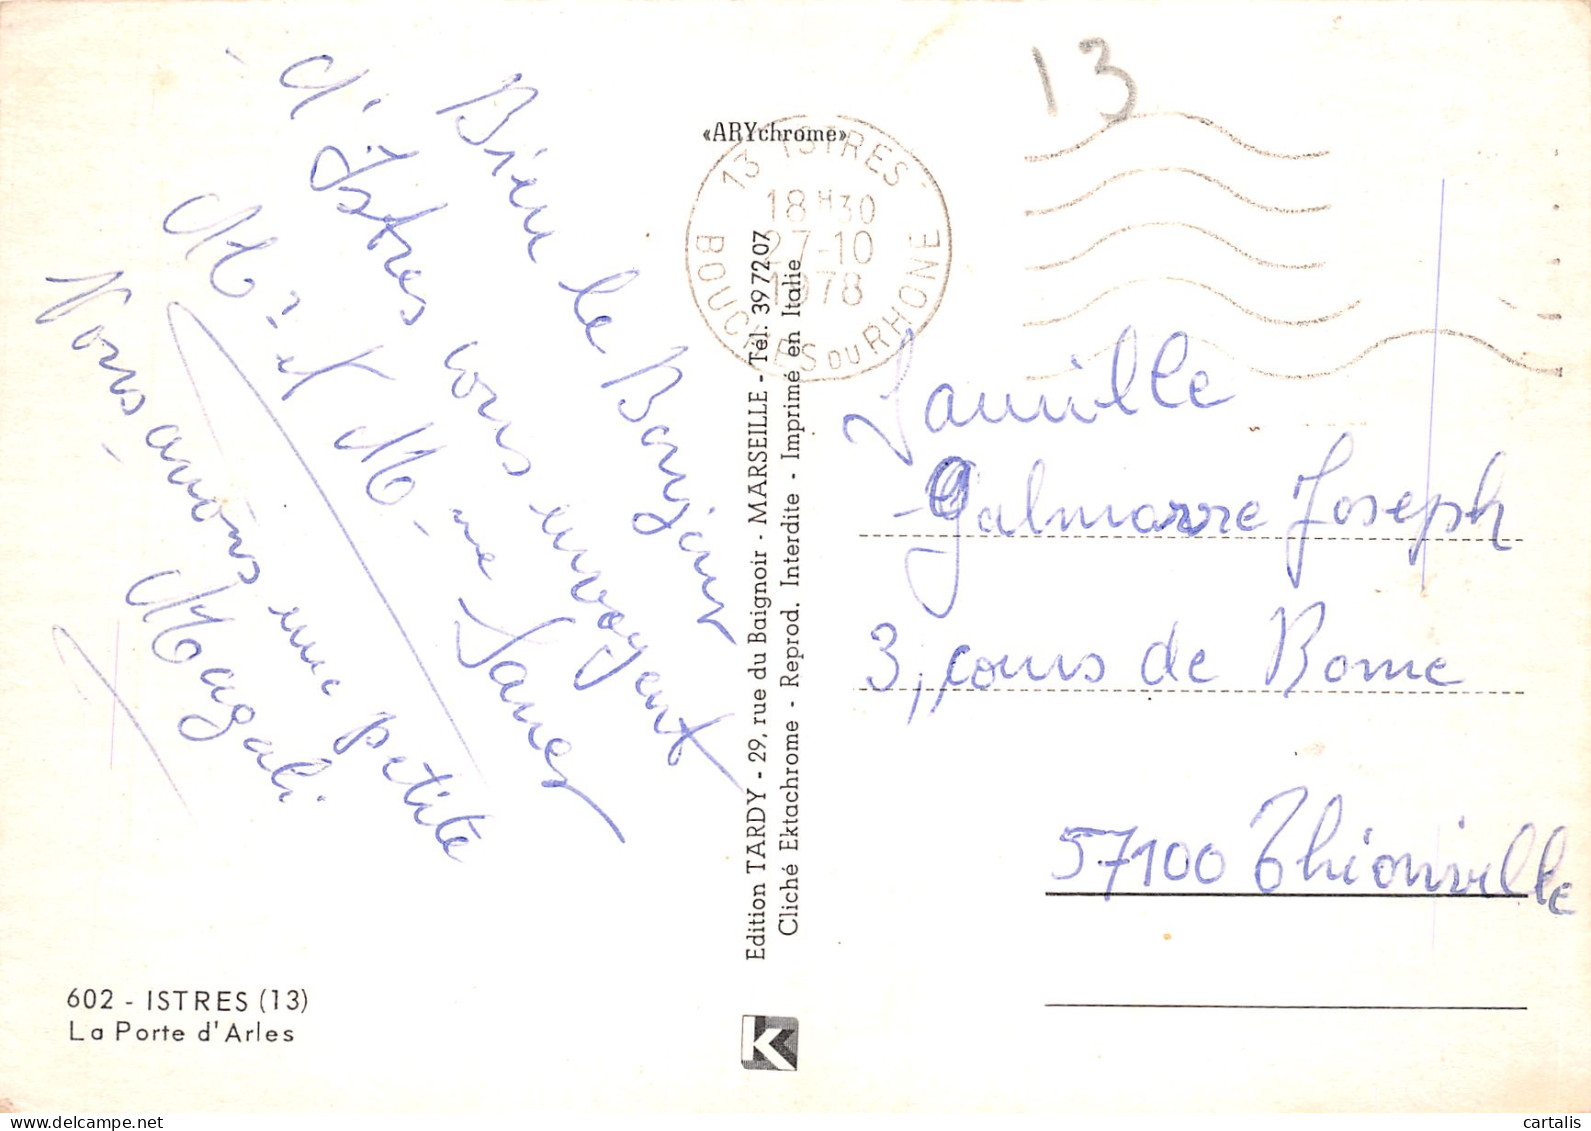 Bien le Bonjour
d'Istres vous envoyent
Mr et M-me Sanes
Nous avons une petite
Magali
602 - ISTRES (13)
La Porte d'Arles
«ARYchrome»
Edition TARDY - 29, rue du Baignoir - MARSEILLE - Tél. 39 72 07
Cliché Ektachrome - Reprod. Interdite - Imprimé en Italie
K
13 ISTRES
18H30
27-10
1978
BOUCHES DU RHONE
13
Famille
Galmarre Joseph
3, cours de Rome
57100 Thionville
cartalis